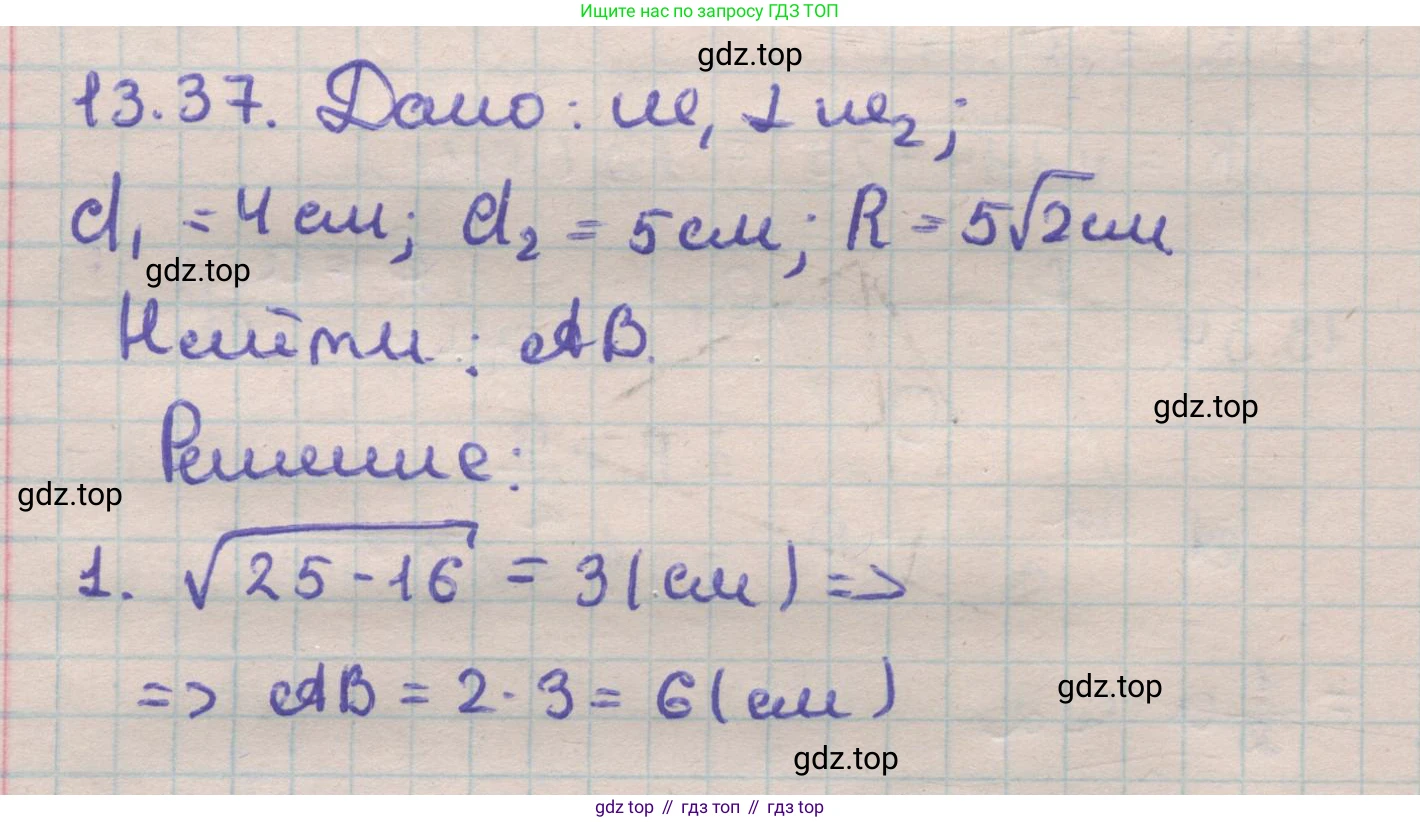 Ищите нас по запросу ГДЗ ТОП
gdz.top
13.37. Дано: пл₁ ⊥ пл₂;
d₁ = 4 см; d₂ = 5 см; R = 5√2 см
gdz.top
Найти: AB.
gdz.top
Решение:
gdz.top
1. √(25-16) = 3 (см) =>
=> AB = 2·3 = 6 (см)
gdz.top
gdz.top
gdz top // гдз топ // гдз.top